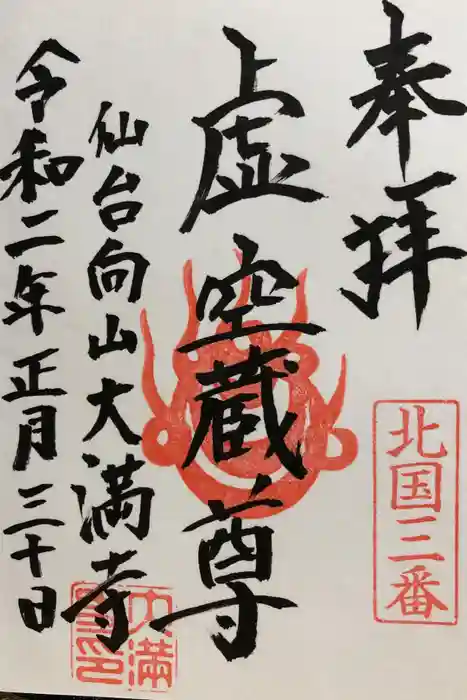 奉拝
北国三番
虚空蔵尊
仙台向山大満寺
令和二年正月三十日
大満
寺印